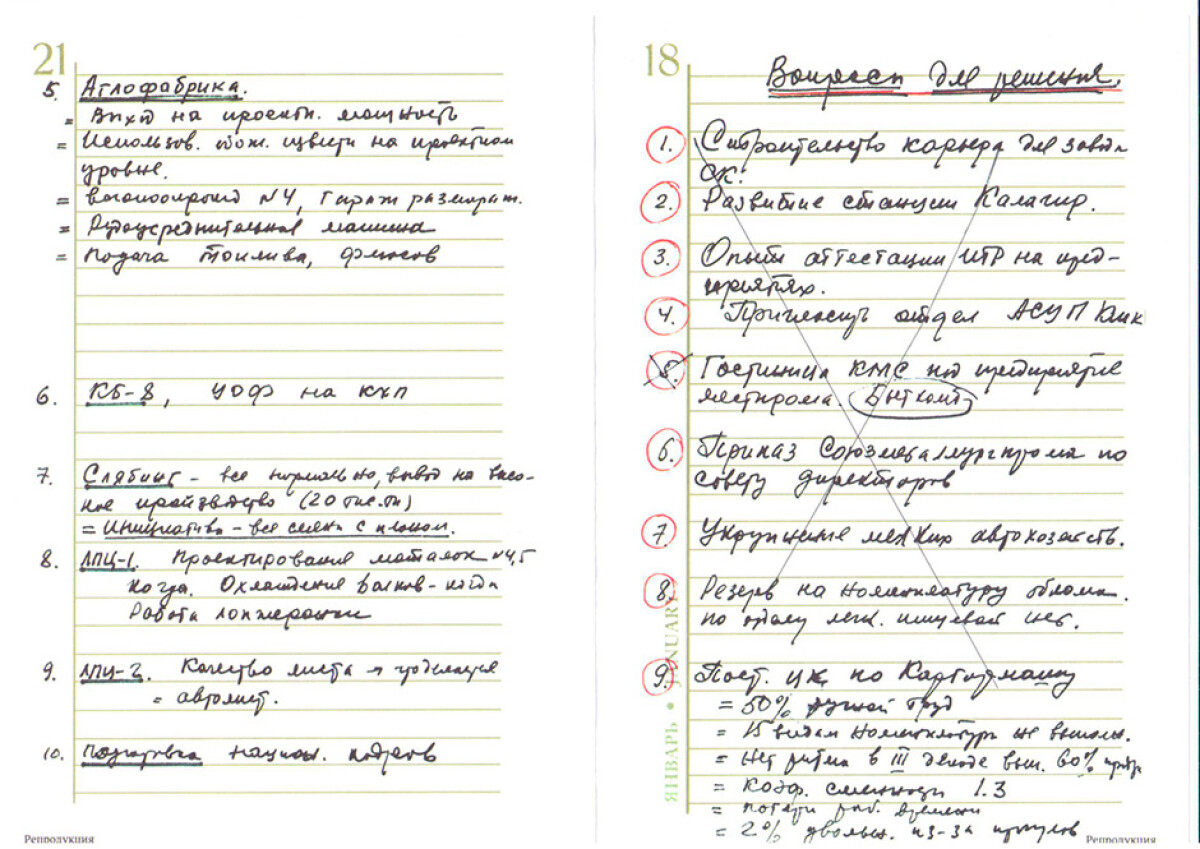 21
5. Аглофабрика.
= Выход на проектн. мощность
= Использов. обж. извести на проектном
уровне.
= вагоноопрокид №4, Гараж размораж.
= Рудоусреднительная машина
= подача топлива, флюсов
6. КБ-8, УОФ на КХП
7. Слябинг - все нормально, вывод на высо-
кое производство (20 тыс. тн)
= Инициатива - все смены с планом.
8. ЛПЦ-1. Проектирование моталок №4,5
когда. Охлаждение валков - когда
Работа
9. ЛПЦ-2. Качество листа → уделяется
= автолист.
10. подготовка национ. кадров
Репродукция
18
Вопросы для решения.
1. Строительство карьера для завода
СК.
2. Развитие станции Калагир.
3. Опыты аттестации ИТР на пред-
приятиях.
4. Пригласить отдел АСУП КМК
5. Гостиница КМС на предприятие
местпрома. Быткомб
6. Приказ Союзметаллургпрома по
совету директоров
7. Укрупнение мелких автохозяйств.
8. Резерв на номенклатуру обкома.
по отделу легк. пищевой нет.
9. Пост. ЦК по
= 50% ручной труд
= 15 видам номенклатуры не выполн.
= Нет ритма в III декаде вып. 60%
= Коэф. сменности 1.3
= потери раб. времени
= 2% увольн. из-за прогулов
ЯНВАРЬ • JANUARY
Репродукция